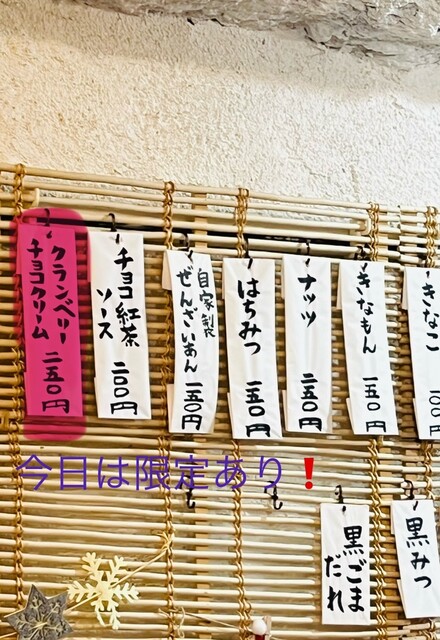 クランベリー
チョコクリーム 二五〇円
チョコ紅茶
ソース 二〇〇円
自家製
ぜんざいあん 一五〇円
はちみつ 一五〇円
ナッツ 二五〇円
きなもん 一五〇円
きなこ 一〇〇円
今日は限定あり❗
黒ごま
だれ
黒みつ